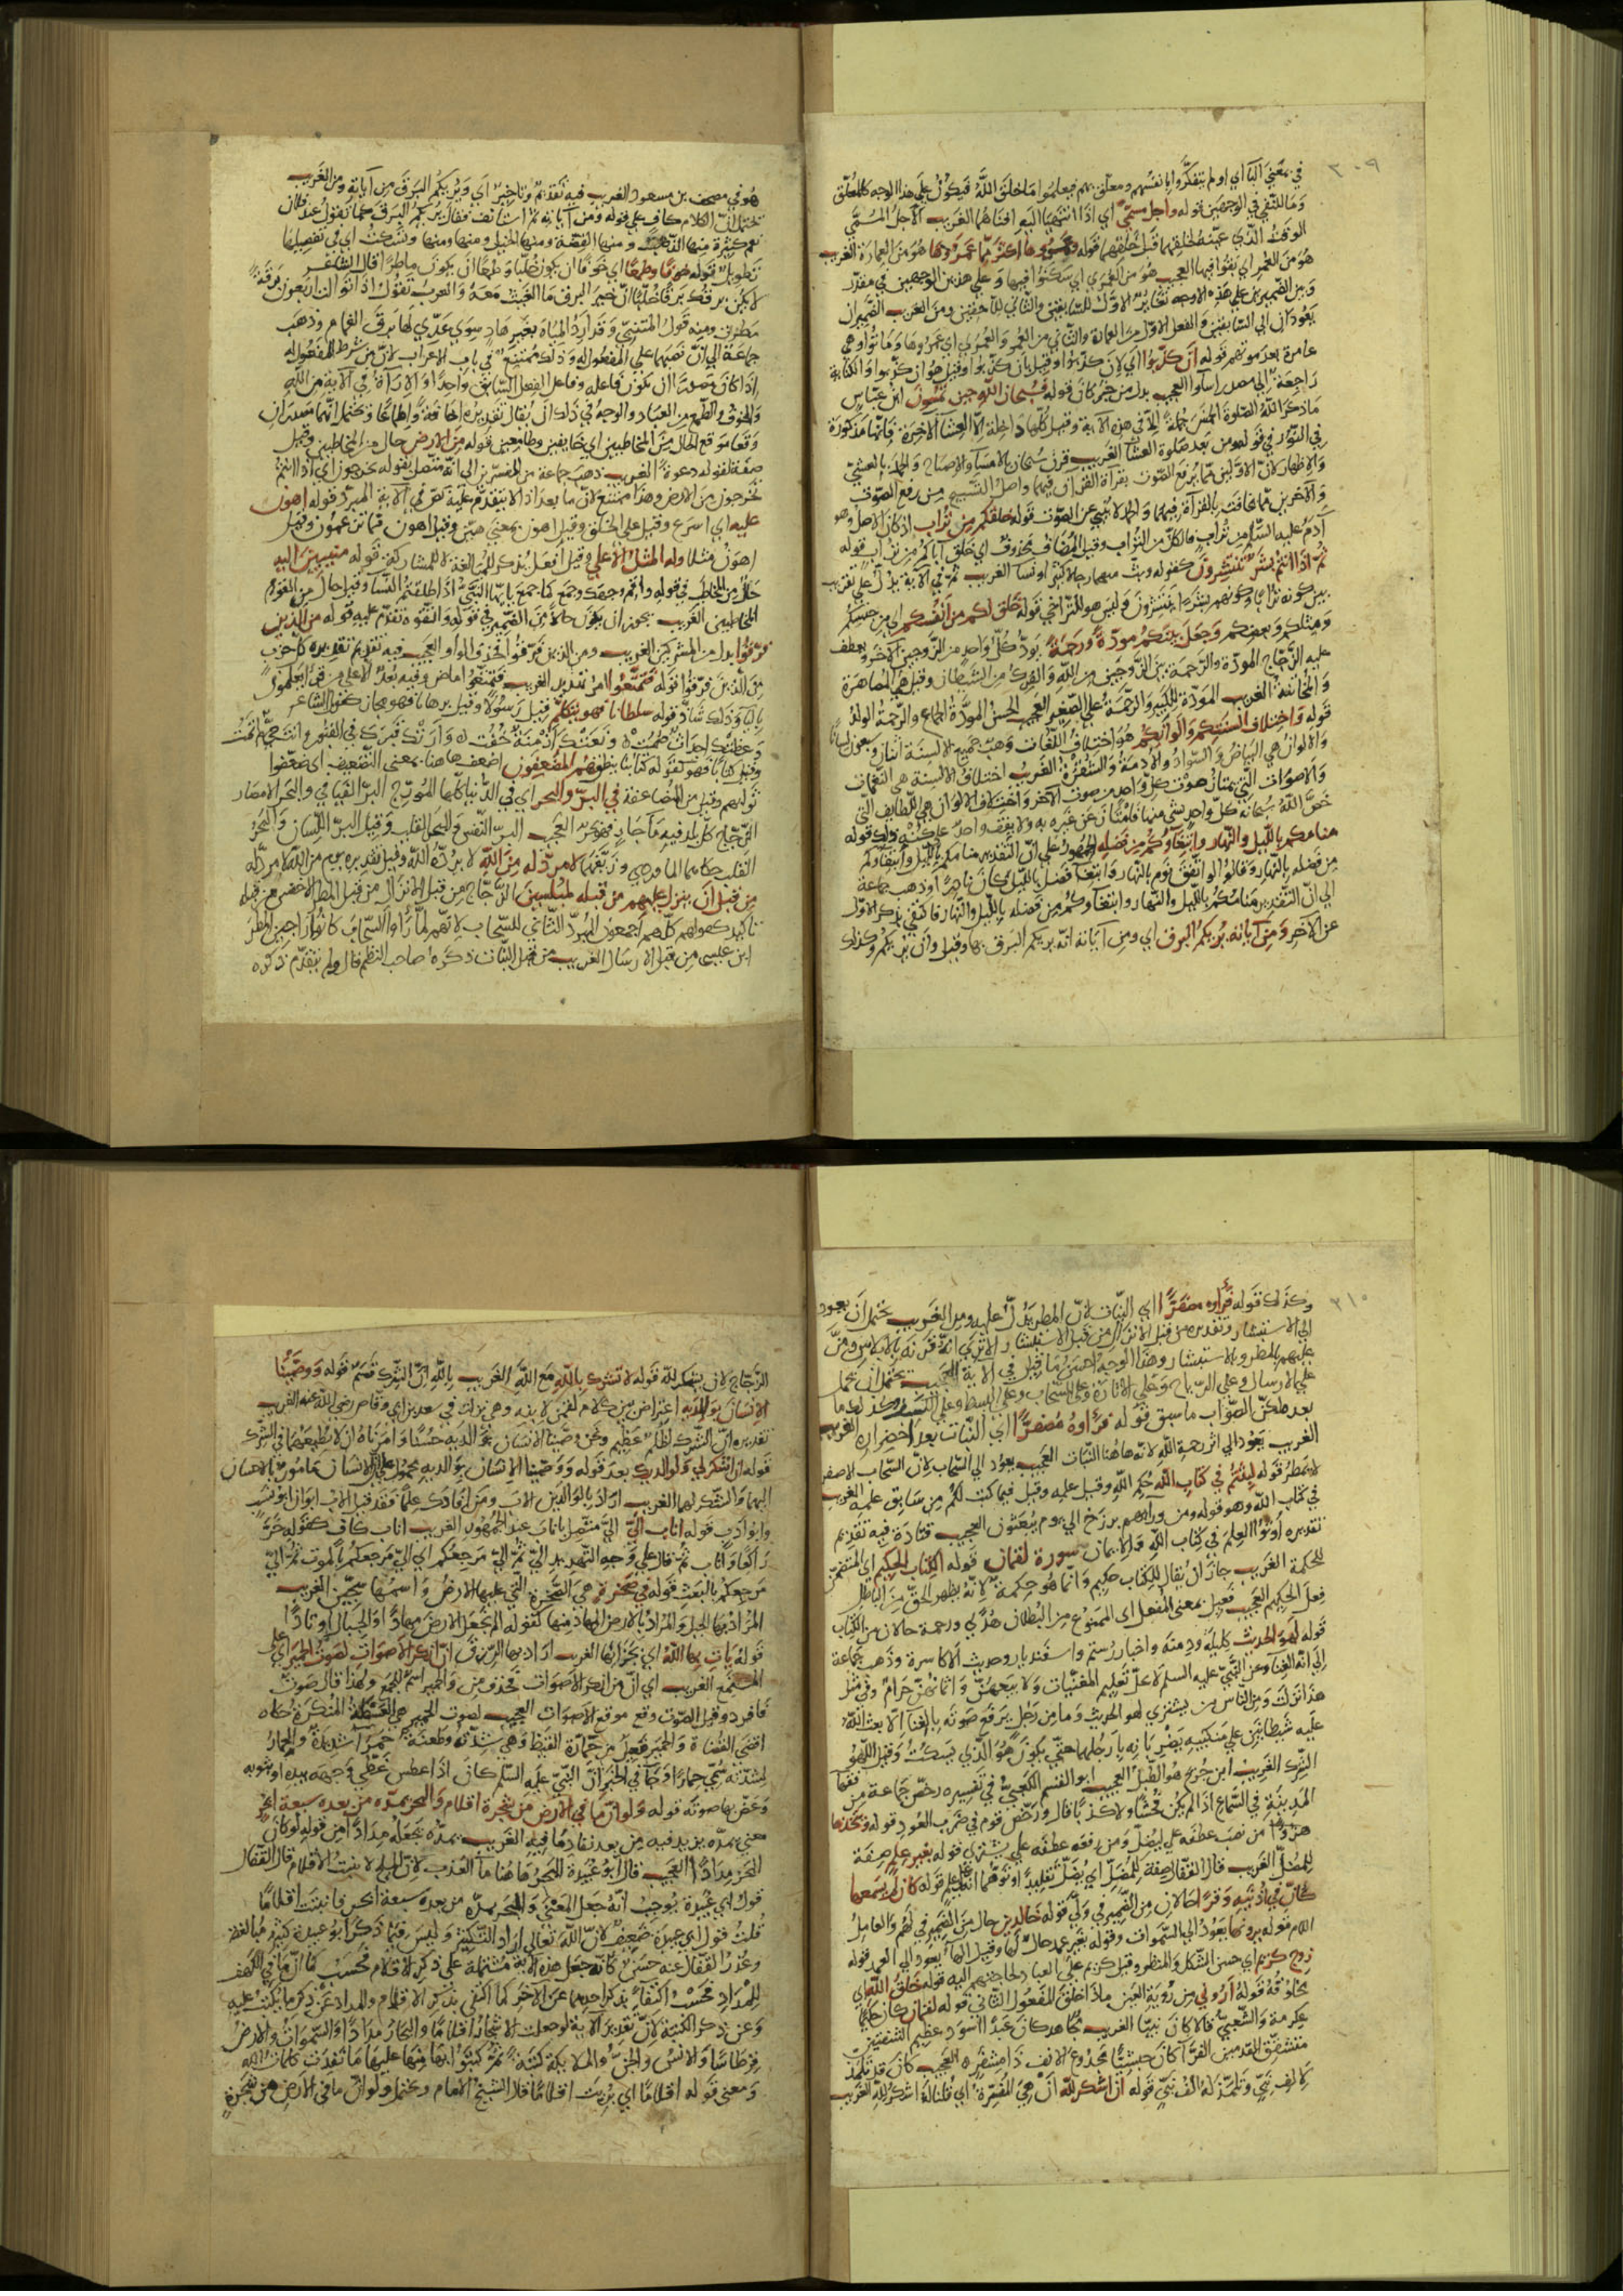 ٣٠٩
في معني البا اي اولم يتفكروا بانفسهم ومعلق بهم فيعلموا ما خلق الله فيكون علي هذا الوجه كالمعلق
وما للنفي في الوجهين قوله واجل مسمي اي اذا انتهيا اليه افناهما الغريب الاجل المسمي
الوقت الذي عينه لخلقهما قبل خلقهما قوله وعمروها اكثر مما عمروها هو من العمارة الغريب
هو من العمر اي بقوا فيها العجيب هو من العمري اي سكنوا فيها وعلي هذين الوجهين في مقدر
وبين الضميرين علي هذه الاوجه تغاير الاول للسابقين والثاني للاحقين ومن الغريب الضميران
يعودان الي السابقين والفعل الاول من العمارة والثاني من العمر والعمري اي عمروها وماتوا وهي
عامرة بعد موتهم قوله ان كذبوا اي لان كذبوا وقيل بان كذبوا وقيل هو ان كذبوا والكناية
راجعة الي مصدر اساوا العجيب بدل من خبر كان قوله فسبحان الله حين تمسون ابن عباس
ما ذكر الله الصلوة الخمس جملة الا في هذه الاية وقيل كلها داخلة الا العشا الاخرة فانها مذكورة
في النور في قوله ومن بعد صلوة العشا الغريب قرن سبحان بالامسا والاصباح والحمد بالعشي
والاظهار لان الاولين مما يرفع الصوت بقراة القران فيهما واصل التسبيح من رفع الصوت
والاخرين مما يخافت بالقراة فيهما والحمد لا ينبي عن الصوت قوله خلقكم من تراب اذ كان الاصل وهو
ادم عليه السلم من تراب فالكل من التراب وقيل المضاف محذوف اي خلق اباكم من تراب قوله
ثم اذا انتم بشر تنتشرون كقوله وبث منهما رجالا كثيرا ونسا الغريب ثم في الاية يدل علي تقريب
بين كونه ترابا وكونهم بشرا ينتشرون وليس هو للتراخي قوله خلق لكم من انفسكم اي من جنسكم
ومثلكم وبعضكم وجعل بينكم مودة ورحمة يود كل واحد من الزوجين الاخر ويعطف
عليه الزجاج المودة والرحمة بين الزوجين من الله والفرك من الشيطان وقيل هي المصاهرة
والمخاتنة الغريب المودة للكبير والرحمة علي الصغير العجيب الحسن المودة الجماع والرحمة الولد
قوله واختلاف السنتكم والوانكم هو اختلاف اللغات وهي جميع الالسنة اثنان وسبعون لسانا
والالوان هي البياض والسواد والادمة والشقرة الغريب اختلاف الالسنة هي النغمات
والاصوات التي يمتاز صوت كل واحد من صوت الاخر واختلاف الالوان هي اللطايف التي
خص الله سبحانه كل واحد بشي منها فامتاز عن غيره به ولا يقف واحد علي كنه ذلك قوله
منامكم بالليل والنهار وابتغاوكم من فضله الجمهور علي ان التقدير منامكم بالليل وابتغاوكم
من فضله بالنهار وقالوا لو اتفق نوم بالنهار وابتغا فضل بالليل كان نادرا وذهب جماعة
الي ان التقدير منامكم بالليل والنهار وابتغاوكم من فضله بالليل والنهار فاكتفي بذكر الاول
عن الاخر ومن اياته يريكم البرق اي ومن اياته انه يريكم البرق بها وقيل وان يريكم وكذلك
هو في مصحف بن مسعود الغريب فيه تقديم وتاخير اي ويريكم البرق من اياته ومن الغريب
يحتمل ان الكلام كاف علي قوله ومن اياته ثم استانف فقال يريكم البرق كما تقول عند فلان
نعم كثيرة منها الذهب ومنها الفضة ومنها الخيل ومنها ومنها وتسكت اي في تفصيلها
تطويل قوله خوفا وطمعا اي خوفا ان يكون خلبا وطمعا ان يكون ماطرا قال الشاعر
لا يكن برقك برقا خلبا ان خير البرق ما الغيث معه والعرب تقول اذا توالت اربعون برقة
مطرت ومنه قول المتنبي وقد ارد المياه بغير هاد سوي عدي لها برق الغمام وذهب
جماعة الي ان نصبهما علي المفعول له وذلك ممتنع في باب الاعراب لان من شرط المفعول له
اذا كان مصدرا ان يكون فاعله وفاعل الفعل السابق واحدا والاراة في الاية من الله
والخوف والطمع من العباد والوجه في ذلك ان يقال تقديره اخافة واطماعا ويحتمل انهما مصدران
وقعا موقع الحال من المخاطبين اي خايفين وطامعين قوله من الارض حال من المخاطبين وقيل
صفة لقوله دعوة الغريب ذهب جماعة من المفسرين الي انه متصل بقوله تخرجون اي اذا انتم
تخرجون من الارض وهذا ممتنع لان ما بعد اذا لا يتقدم عليه نص في الاية المبرد قوله اهون
عليه اي اسرع وقيل علي الخلق وقيل اهون بمعني هين وقيل اهون فيما تزعمون وقيل
اهون مثلا وله المثل الاعلي وقيل افعل يذكر للمبالغة لا للمشاركة قوله منيبين اليه
حال من المخاطب في قوله واقم وجهك وجمع كما جمع يايها النبي اذا طلقتم النسا وقيل حال من القوم
المخاطبين الغريب يجوز ان يكون حالا من الضمير في قوله واتقوه تقدم عليه قوله من الذين
فرقوا بدل من المشركين الغريب ومن الذين فرقوا فحذف الواو العجيب فيه تقديم تقديره كل حزب
من الذين فرقوا قوله فتمتعوا امر تهديد الغريب فتمتعوا ماض وفيه بعد لا علي من قرا يعلمون
باليا وذلك شاذ قوله سلطانا فهو يتكلم قيل رسولا وقيل برهانا فهو مجاز كقول الشاعر
وعظتك اجداث صمت ونعتك ازمنة خفت وارتك قبرك في القبور وانت حي لم تمت
وقيل كتابا فهو كقوله كتابنا ينطق هم المضعفون اضعف هاهنا بمعني التضعيف اي ضعفوا
ثوابهم وقيل من المضاعفة في البر والبحر اي في الدنيا كلها المورج البر الفيافي والبحر الامصار
الزجاج كل بلد فيه ما جار فهو بحر العجيب البر النفس والبحر القلب وقيل البر اللسان والبحر
القلب حكاهما الماوردي وزيفهما لا مرد له من الله لا يرده الله وقيل تقديره يوم من الله لا مرد له
من قبل ان ينزل عليهم من قبله لمبلسين الزجاج من قبل الانزال من قبل المطر الاخفش من قبله
تاكيد كقولهم كلهم اجمعون المبرد الثاني للسحاب لانهم لما راوا السحاب كانوا راجين المطر
ابن عيسي من قبل الارسال الغريب من قبل النبات ذكره صاحب النظم قال ولم يتقدم ذكره
٣١٠
وكذلك قوله فراوه مصفرا اي النبات لان المطر يدل عليه ومن الغريب يحتمل ان يعود
الي الاستبشار وتقديره من قبل الانزال من قبل الاستبشار الا تري انه قرنه بالابلاس ومن
عليهم بالمطر وبالاستبشار وهذا الوجه احسن ما قيل في الاية العجيب يحتمل ان يحمل
علي الارسال وعلي الرياح وعلي الاثارة وعلي السحاب وعلي البسط وعلي الكسف وكذلك ما
بعده لكن الصواب ما سبق قوله فراوه مصفرا اي النبات بعد اخضراره الغريب
الغريب يعود الي اثر رحمة الله لانه هاهنا النبات العجيب يعود الي السحاب لان السحاب الاصفر
لا يمطر قوله لبثتم في كتاب الله حكم الله وقيل علمه وقيل فيما كتب لكم من سابق علمه الغريب
في كتاب الله وهو قوله ومن ورايهم برزخ الي يوم يبعثون العجيب قتادة فيه تقديم
تقديره اوتوا العلم في كتاب الله والايمان سورة لقمان قوله الكتاب الحكيم اي المتضمن
للحكمة الغريب جاز ان يقال للكتاب حكيم وانما هو حكمة لانه يظهر الحق من الباطل
فعل الحكيم العجيب فعيل بمعني المفعل اي الممنوع من البطلان هدي ورحمة حالان من الكتاب
قوله لهو الحديث كليلة ودمنة واخبار رستم واسفنديار وحديث الاكاسرة وذهب جماعة
الي انه الغنا وعن النبي عليه السلم لا يحل تعليم المغنيات ولا بيعهن واثمانهن حرام وفي مثل
هذا نزلت ومن الناس من يشتري لهو الحديث وما من رجل يرفع صوته بالغنا الا بعث الله
عليه شيطانين علي منكبيه يضربانه بارجلهما حتي يكون هو الذي يسكت وقيل اللهو
الشرك الغريب ابن جريج هو الطبل العجيب ابو القسم الكعبي في تفسيره رخص جماعة من فقها
المدينة في السماع اذا لم يكن فحشا ولا كذبا قال ورخص قوم في ضرب العود قوله ويتخذها
هزوا من نصب عطفه علي ليضل ومن رفعه عطفه علي يشتري قوله بغير علم صفة
للمضل الغريب قال القفال صفة للمضل اي يضل تقليدا او توهما انه علم قوله كان لم يسمعها
كان في اذنيه وقرا حالان من الضمير في ولي قوله خالدين حال من الضمير في لهم والعامل
اللام قوله ترونها يعود الي السموات وقوله بغير عمد حال لها وقيل الها يعود الي العمد قوله
زوج كريم اي حسن الشكل والمنظر وقيل كريم علي العباد لحاجتهم اليه قوله خلق الله اي
مخلوقه قوله اروني من روية العين ماذا خلق المفعول الثاني قوله لقمان كان حكيما
عكرمة والشعبي قالا كان نبيا الغريب مجاهد كان عبدا اسود عظيم الشفتين
متشقق القدمين الفرا كان حبشيا مجدوع الانف ذا مشفر العجيب كان قد تلمذ
لالف نبي وتلمذ له الف نبي قوله ان اشكر لله ان هي المفسرة اي قلنا له اشكر لله الغريب
الزجاج لان يشكر لله قوله لا تشرك بالله مع الله الغريب بالله ان الشرك قسم قوله ووصينا
الانسان بوالديه اعتراض بين كلام لقمن لابنه وهي نزلت في سعد بن ابي وقاص رضي الله عنه الغريب
تقديره ان الشرك لظلم عظيم ونحن وصينا الانسان بوالديه حسنا وامرناه ان لا يطيعهما في الشرك
قوله ان اشكر لي ولوالديك بعد قوله ووصينا الانسان بوالديه محمول علي ان الانسان مامور بالاحسان
اليهما والشكر لهما الغريب اراد بالوالدين الاب ومن افادك علما فقد قيل الاب ابوان ابو نسب
وابو ادب قوله اناب الي الي متصل باناب عند الجمهور الغريب اناب كاف كقوله خر
راكعا واناب ثم قال علي وجه التهديد الي ثم الي مرجعكم اي الي مرجعكم بالموت ثم الي
مرجعكم بالبعث قوله في صخرة هي الصخرة التي عليها الارض واسمها سجين الغريب
المراد بها الجبل والمراد بالارض المهاد منها كقوله الم نجعل الارض مهادا والجبال اوتادا
قوله يات بها الله اي بجزايها الغريب اراد بها الرزق ان انكر الاصوات لصوت الحمير اي علي
المستمع الغريب اي ان من انكر الاصوات فحذف من والحمير اسم للجمع ولهذا قال صوت
فافرد وقيل الصوت وقع موقع الاصوات العجيب لصوت الحمير هي العطسة المنكرة حكاه
اقضي القضاة والحمير فعيل من حمارة القيظ وهي شدته وطعنة حمرا شديدة والحمار
لشدته سمي حمارا وجا في الخبر ان النبي عليه السلم كان اذا عطس غطي وجهه بيده او بثوبه
وغض بها صوته قوله ولو ان ما في الارض من شجرة اقلام والبحر يمده من بعده سبعة ابحر
معني يمده يزيد فيه من بعد نفاد ما فيه الغريب يمده يجعله مدادا من قوله لو كان
البحر مدادا العجيب قال ابو عبيدة البحر هاهنا ما العذب لان الملح لا ينبت الاقلام قال القفال
قول ابي عبيدة يوجب انه جعل المعني والبحر يمده من بعده سبعة ابحر فانبتت اقلاما
قلت قول ابي عبيدة ضعيف لان الله تعالي اراد التكثير وليس فيما ذكر ابو عبيدة كثير مبالغة
وعذر القفال عنه حسن كانه جعل هذه الاية مشتملة علي ذكر الاقلام فحسب كما ان ما في الكهف
للمداد فحسب اكتفا بذكر احديهما عن الاخر كما اكتفي بذكر الاقلام والمداد عن ذكر ما يكتب عليه
وعن ذكر الكتبة لان تقدير الاية لو جعلت الاشجار اقلاما والبحار مدادا والسموات والارض
قرطاسا والانس والجن والملايكة كتبة ثم كتبوا بها منها عليها ما نفدت كلمات الله
ومعني قوله اقلاما اي بريت اقلاما قال الشيخ الامام ويحتمل ولو ان ما في الارض من شجرة